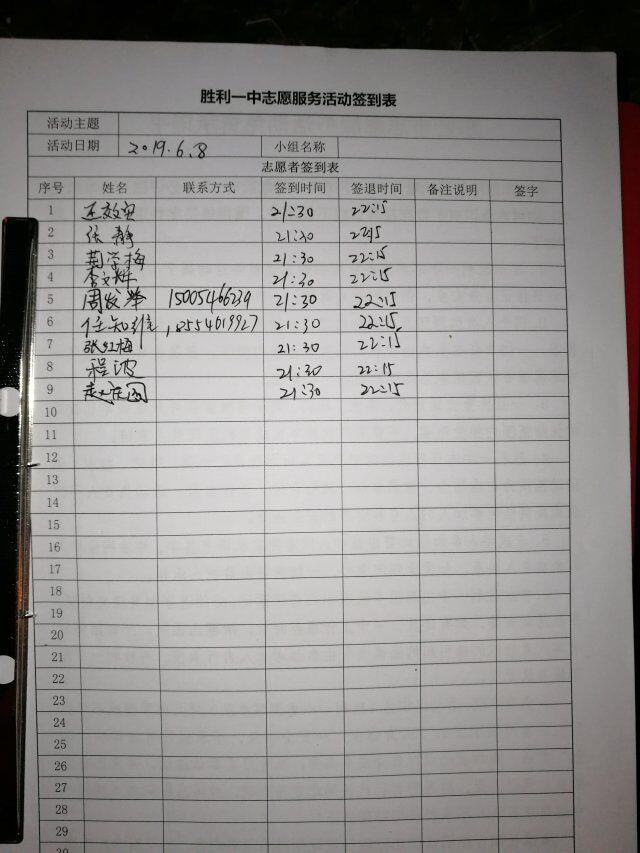 胜利一中志愿服务活动签到表
活动主题
活动日期 2019.6.8 小组名称
志愿者签到表
序号 姓名 联系方式 签到时间 签退时间 备注说明 签字
1 21:30 22:15
2 张静 21:30 22:15
3 荀学梅 21:30 22:15
4 李文辉 21:30 22:15
5 周发举 15005466239 21:30 22:15
6 任知维 18554619927 21:30 22:15
7 张红梅 21:30 22:15
8 程波 21:30 22:15
9 21:30 22:15
10
11
12
13
14
15
16
17
18
19
20
21
22
23
24
25
26
27
28
29
30